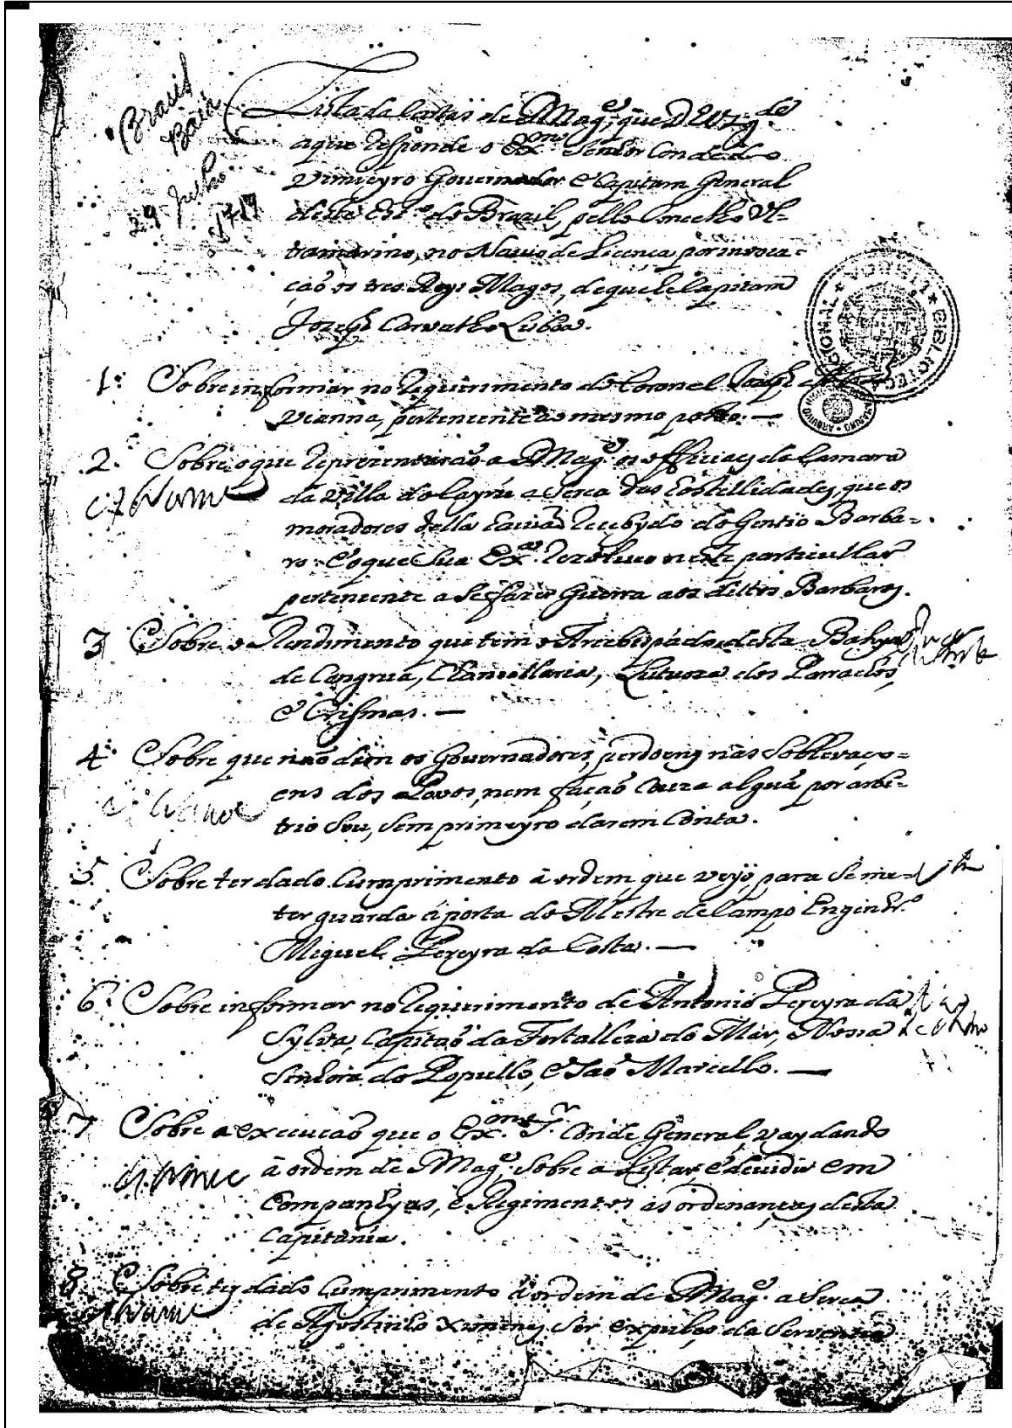 Brasil
Baia
29 Junho
1719
Lista das Cartas de S Mag.e, que D.s g.de
a que responde o Ex.mo Senhor Conde do
Vimieyro Governador e Capitam General
deste Est.o do Brazil, pello Conselho Ul-
tramarino, no Navio de Licença, por invoca-
caõ os tres Reys Magos, de que he Capitam
Jozeph Carvalho Lisboa.
1. Sobre informar no requerimento do Coronel
Vianna, pertencente ao mesmo posto. —
2. Sobre o que reprezentaraõ a S Mag.e os officiaes da Camara
da Villa do Cayrú aserca das hostellidades, que os
moradores della haviaõ recebydo do Gentio Barba-
ro: E o que Sua Ex.a rezolveo neste particullar
pertencente a se fazer guerra aos dittos Barbaros.
3 Sobre o Rendimento que tem o Arcebispado desta Bahya
de Congrua, Chancellaria, Lutuoza dos Parrochos,
e Crismas. —
4. Sobre que naõ dem os Governadores, perdoens nas sobllevaço-
ens dos Povos, nem façaõ couza alguã por arbi-
trio Seu, Sem primeyro darem Conta.
5 Sobre ter dado Cumprimento á ordem, que veyo, para Se me-
ter guarda á porta do Mestre de Campo Engenhr.o
Miguel Pereyra da Costa. —
6. Sobre informar no requerimento de Antonio Pereyra da
Sylva, Capitaõ da Fortalleza do Mar, Nossa
Senhora do Popullo, e Saõ Marcello. —
7 Sobre a execuçaõ que o Ex.mo S.r Conde General, vay dando
á ordem de S Mag.e Sobre a Listar, e devidir em
Companhyas, e Regimentos as ordenanças desta
Capitania.
8 Sobre ter dado Cumprimento á ordem de S Mag.e aserca
de Agostinho Ximenes Ser expulso da Serventia
BIBLIOTECA NACIONAL
ARQUIVO